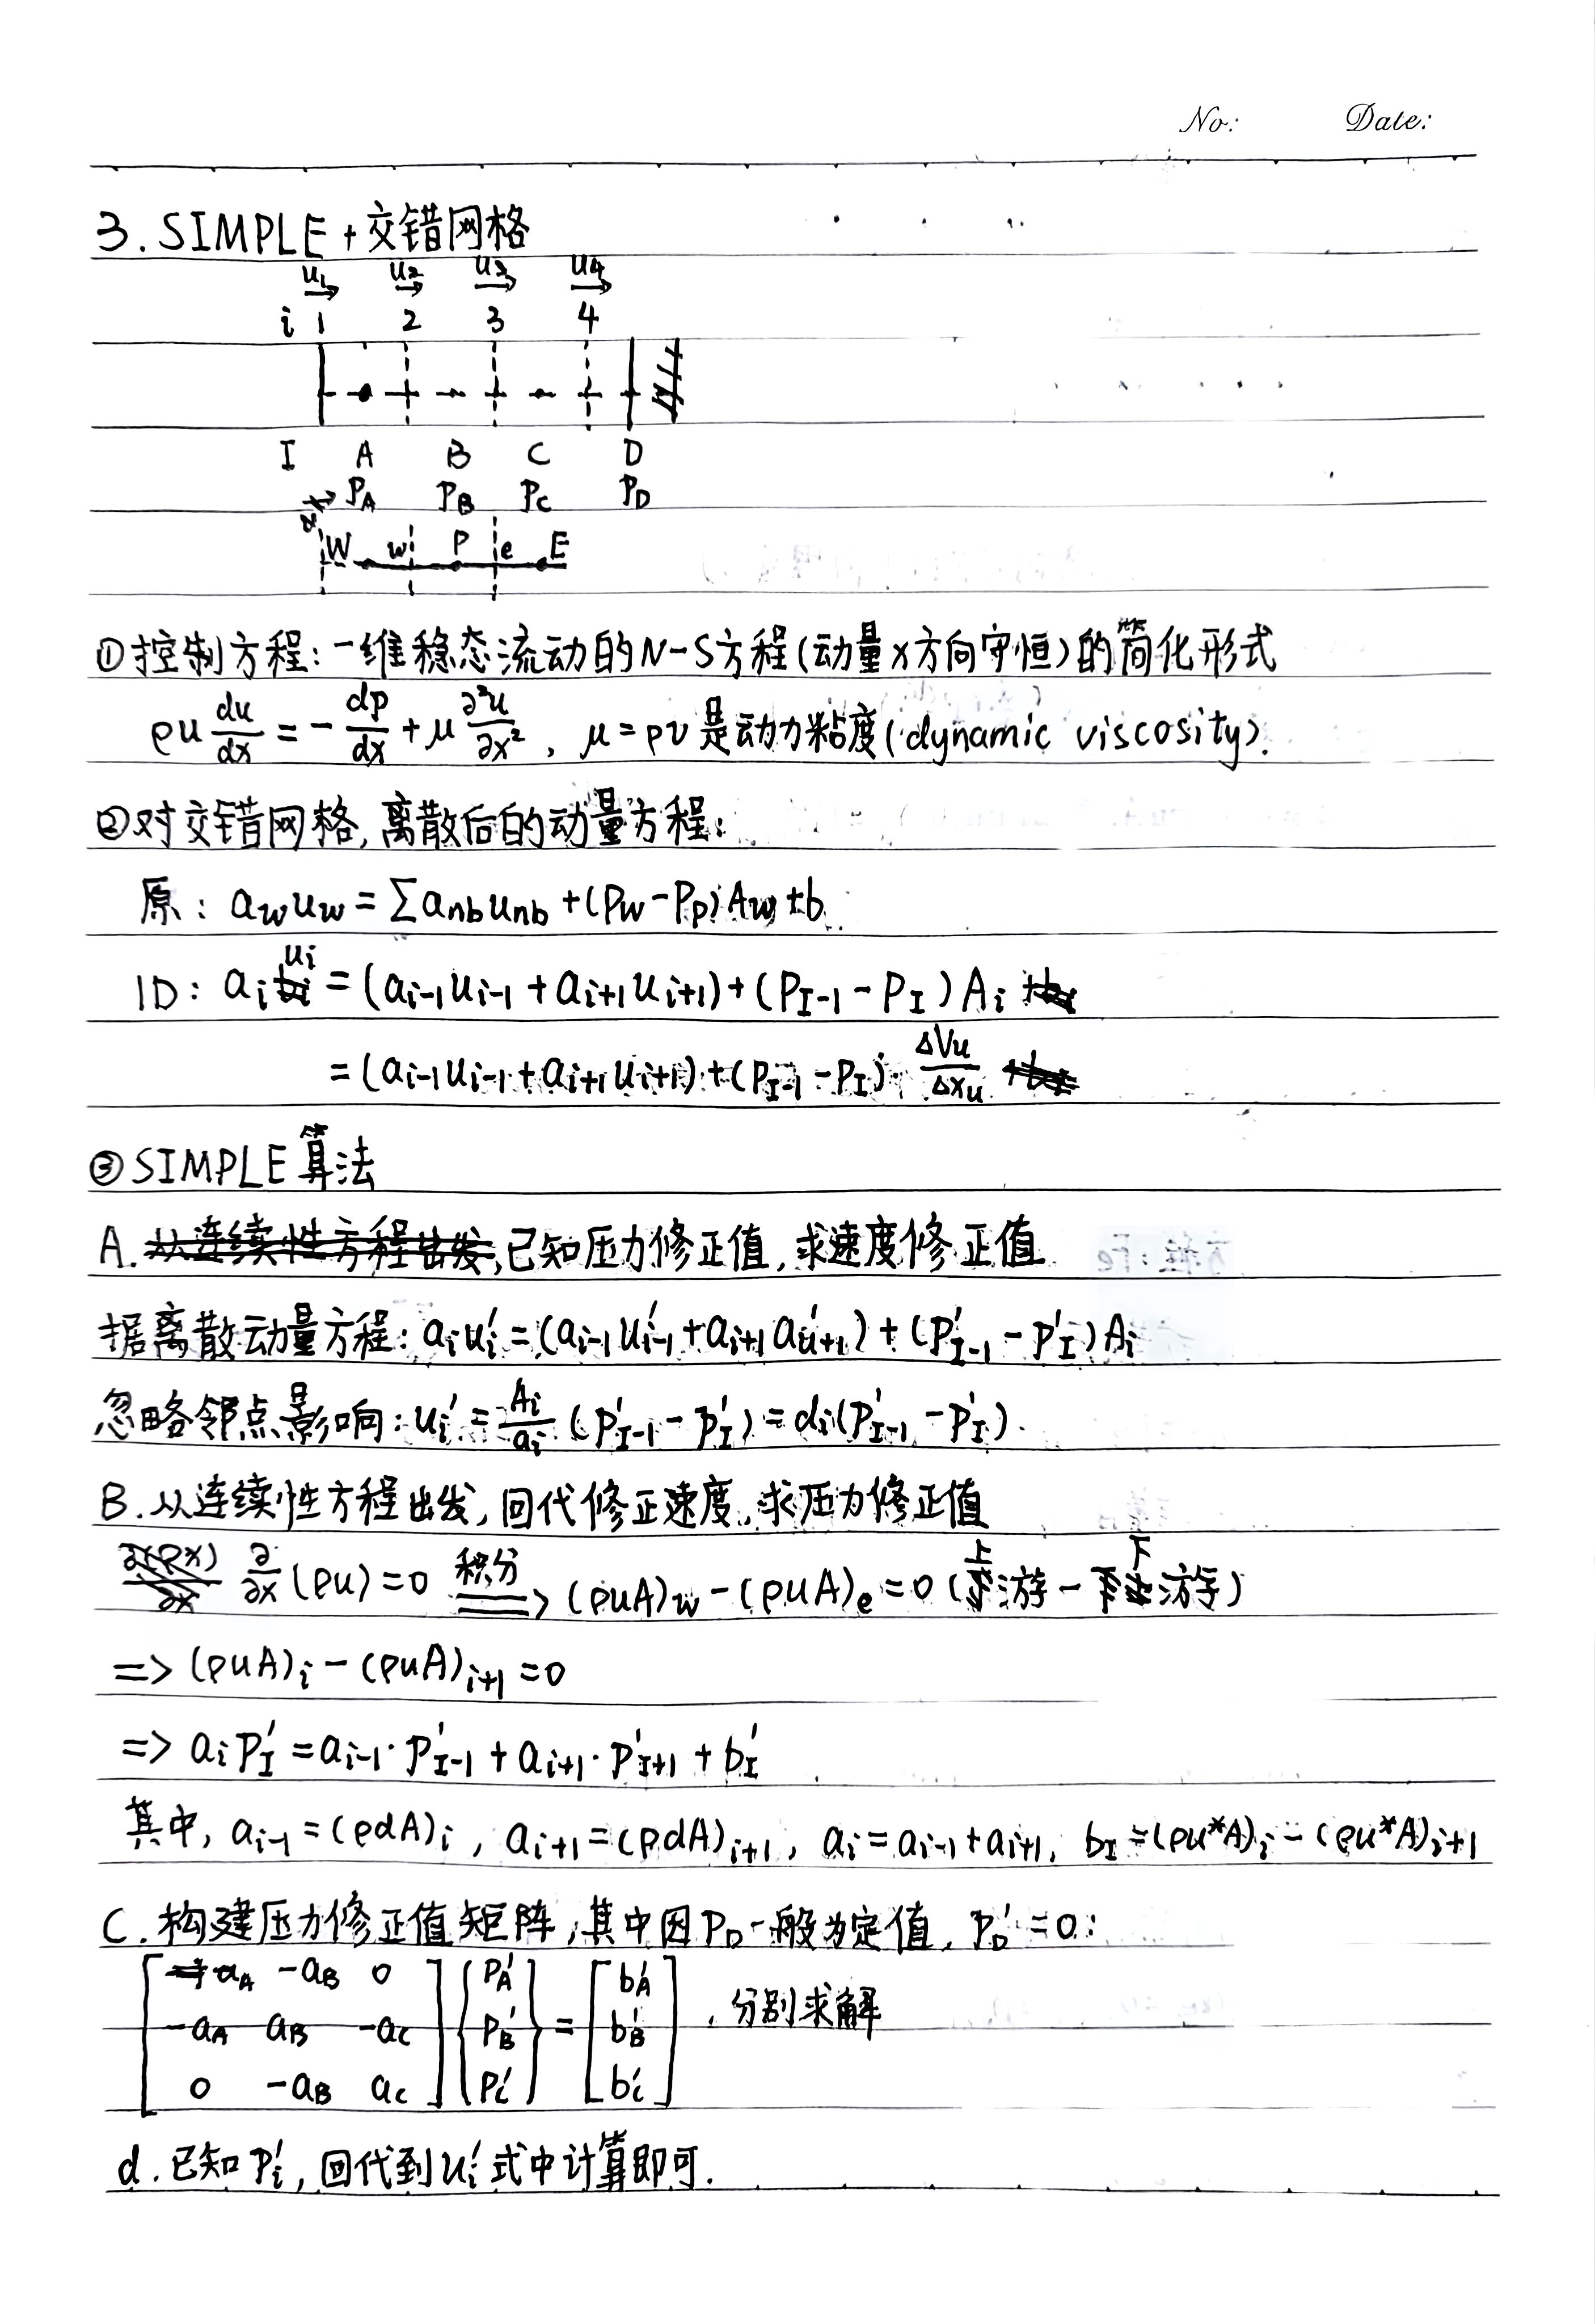 No: Date:
3. SIMPLE + 交错网格
u₁ u₂ u₃ u₄
i 1 2 3 4
I A B C D
P_A P_B P_C P_D
x
W w P e E
①控制方程: 一维稳态流动的N-S方程(动量x方向守恒)的简化形式
ρu du/dx = - dp/dx + μ ∂²u/∂x² , μ = ρν 是动力粘度(dynamic viscosity).
②对交错网格, 离散后的动量方程:
原: a_w u_w = Σ a_nb u_nb + (P_W - P_P) A_w + b
1D: a_i u_i = (a_{i-1} u_{i-1} + a_{i+1} u_{i+1}) + (P_{I-1} - P_I) A_i
= (a_{i-1} u_{i-1} + a_{i+1} u_{i+1}) + (P_{I-1} - P_I) · ΔV_u/Δx_u
③SIMPLE 算法
A. 从连续性方程出发, 已知压力修正值, 求速度修正值
据离散动量方程: a_i u_i' = (a_{i-1} u'_{i-1} + a_{i+1} a u'_{i+1}) + (P'_{I-1} - P'_I) A_i
忽略邻点影响: u_i' = A_i/a_i (P'_{I-1} - P'_I) = d_i (P'_{I-1} - P'_I).
B. 从连续性方程出发, 回代修正速度, 求压力修正值
∂(ρx)/∂x ∂/∂x (ρu) = 0 积分=> (ρuA)_w - (ρuA)_e = 0 (上游 - 下游)
=> (ρuA)_i - (ρuA)_{i+1} = 0
=> a_i P'_I = a_{i-1} · P'_{I-1} + a_{i+1} · P'_{I+1} + b'_I
其中, a_{i-1} = (ρdA)_i , a_{i+1} = (ρdA)_{i+1}, a_i = a_{i-1} + a_{i+1}, b_I = (ρu*A)_i - (ρu*A)_{i+1}
C. 构建压力修正值矩阵, 其中因P_D一般为定值, P_D' = 0:
[ a_A -a_B 0 ] { P_A' } = [ b_A' ]
[ -a_A a_B -a_C ] { P_B' } = [ b_B' ] , 分别求解
[ 0 -a_B a_C ] { P_C' } = [ b_C' ]
d. 已知 P_i', 回代到 u_i' 式中计算即可.